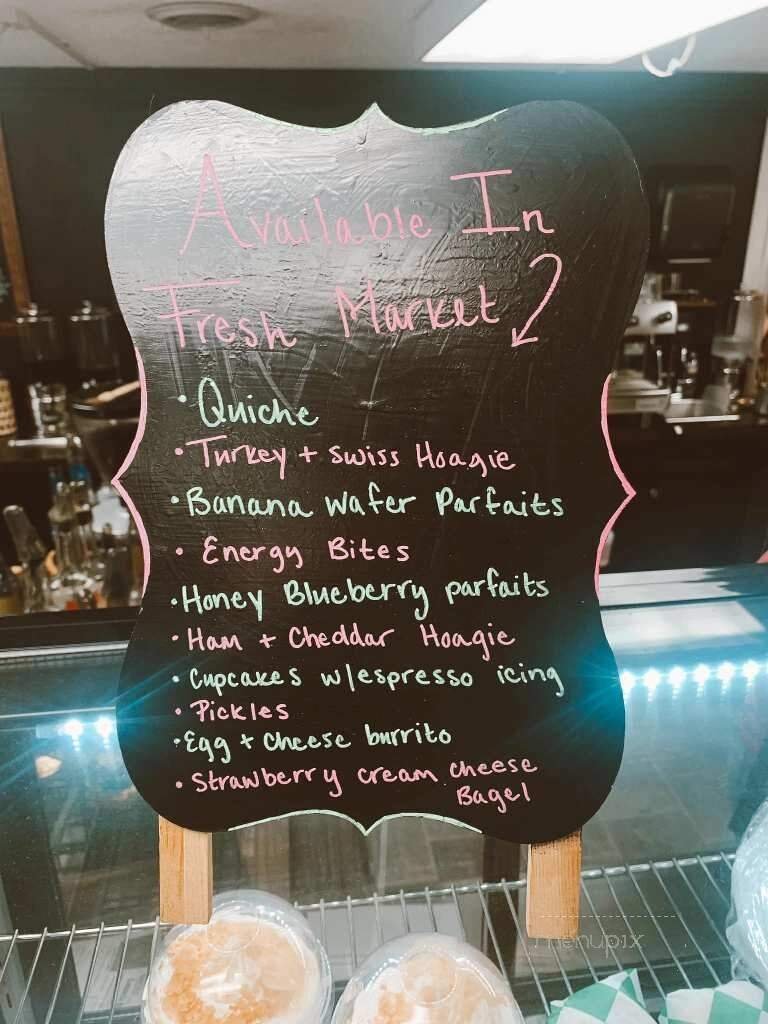 Available In
Fresh Market
• Quiche
• Turkey + Swiss Hoagie
• Banana Wafer Parfaits
• Energy Bites
• Honey Blueberry parfaits
• Ham + Cheddar Hoagie
• Cupcakes w/espresso icing
• Pickles
• Egg + cheese burrito
• Strawberry cream cheese
Bagel
menupix